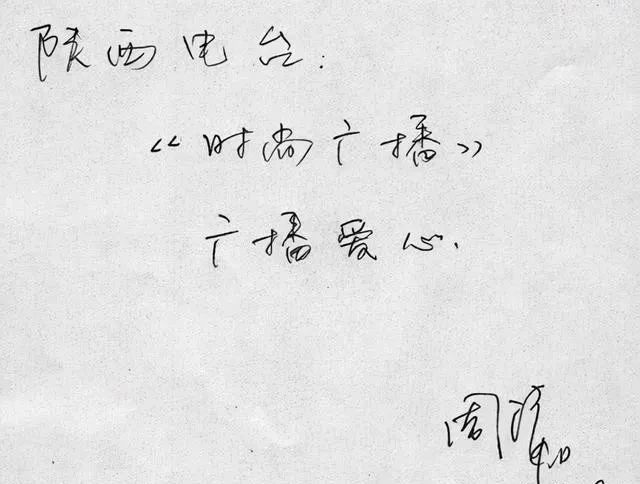 陕西电台:
《时尚广播》
广播爱心.
周